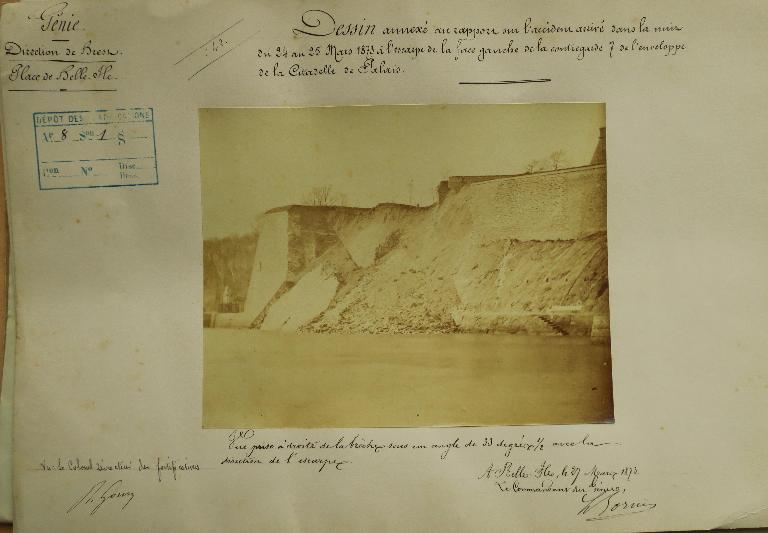 Génie.
Direction de Brest.
Place de Belle-Ile.
Dessin annexé au rapport sur l'accident arrivé dans la nuit
du 24 au 25 Mars 1873 à l'escarpe de la face gauche de la contregarde 7 de l'enveloppe
de la Citadelle de Palais.
DÉPÔT DES FORTIFICATIONS
Art 8 Son 1 §
Con Nº
Vue prise à droite de la brèche sous un angle de 33 degrés 1/2 avec la
direction de l'escarpe.
Vu: le Colonel Directeur des fortifications
A Belle-Ile, le 27 Mars 1873.
Le Commandant du Génie,